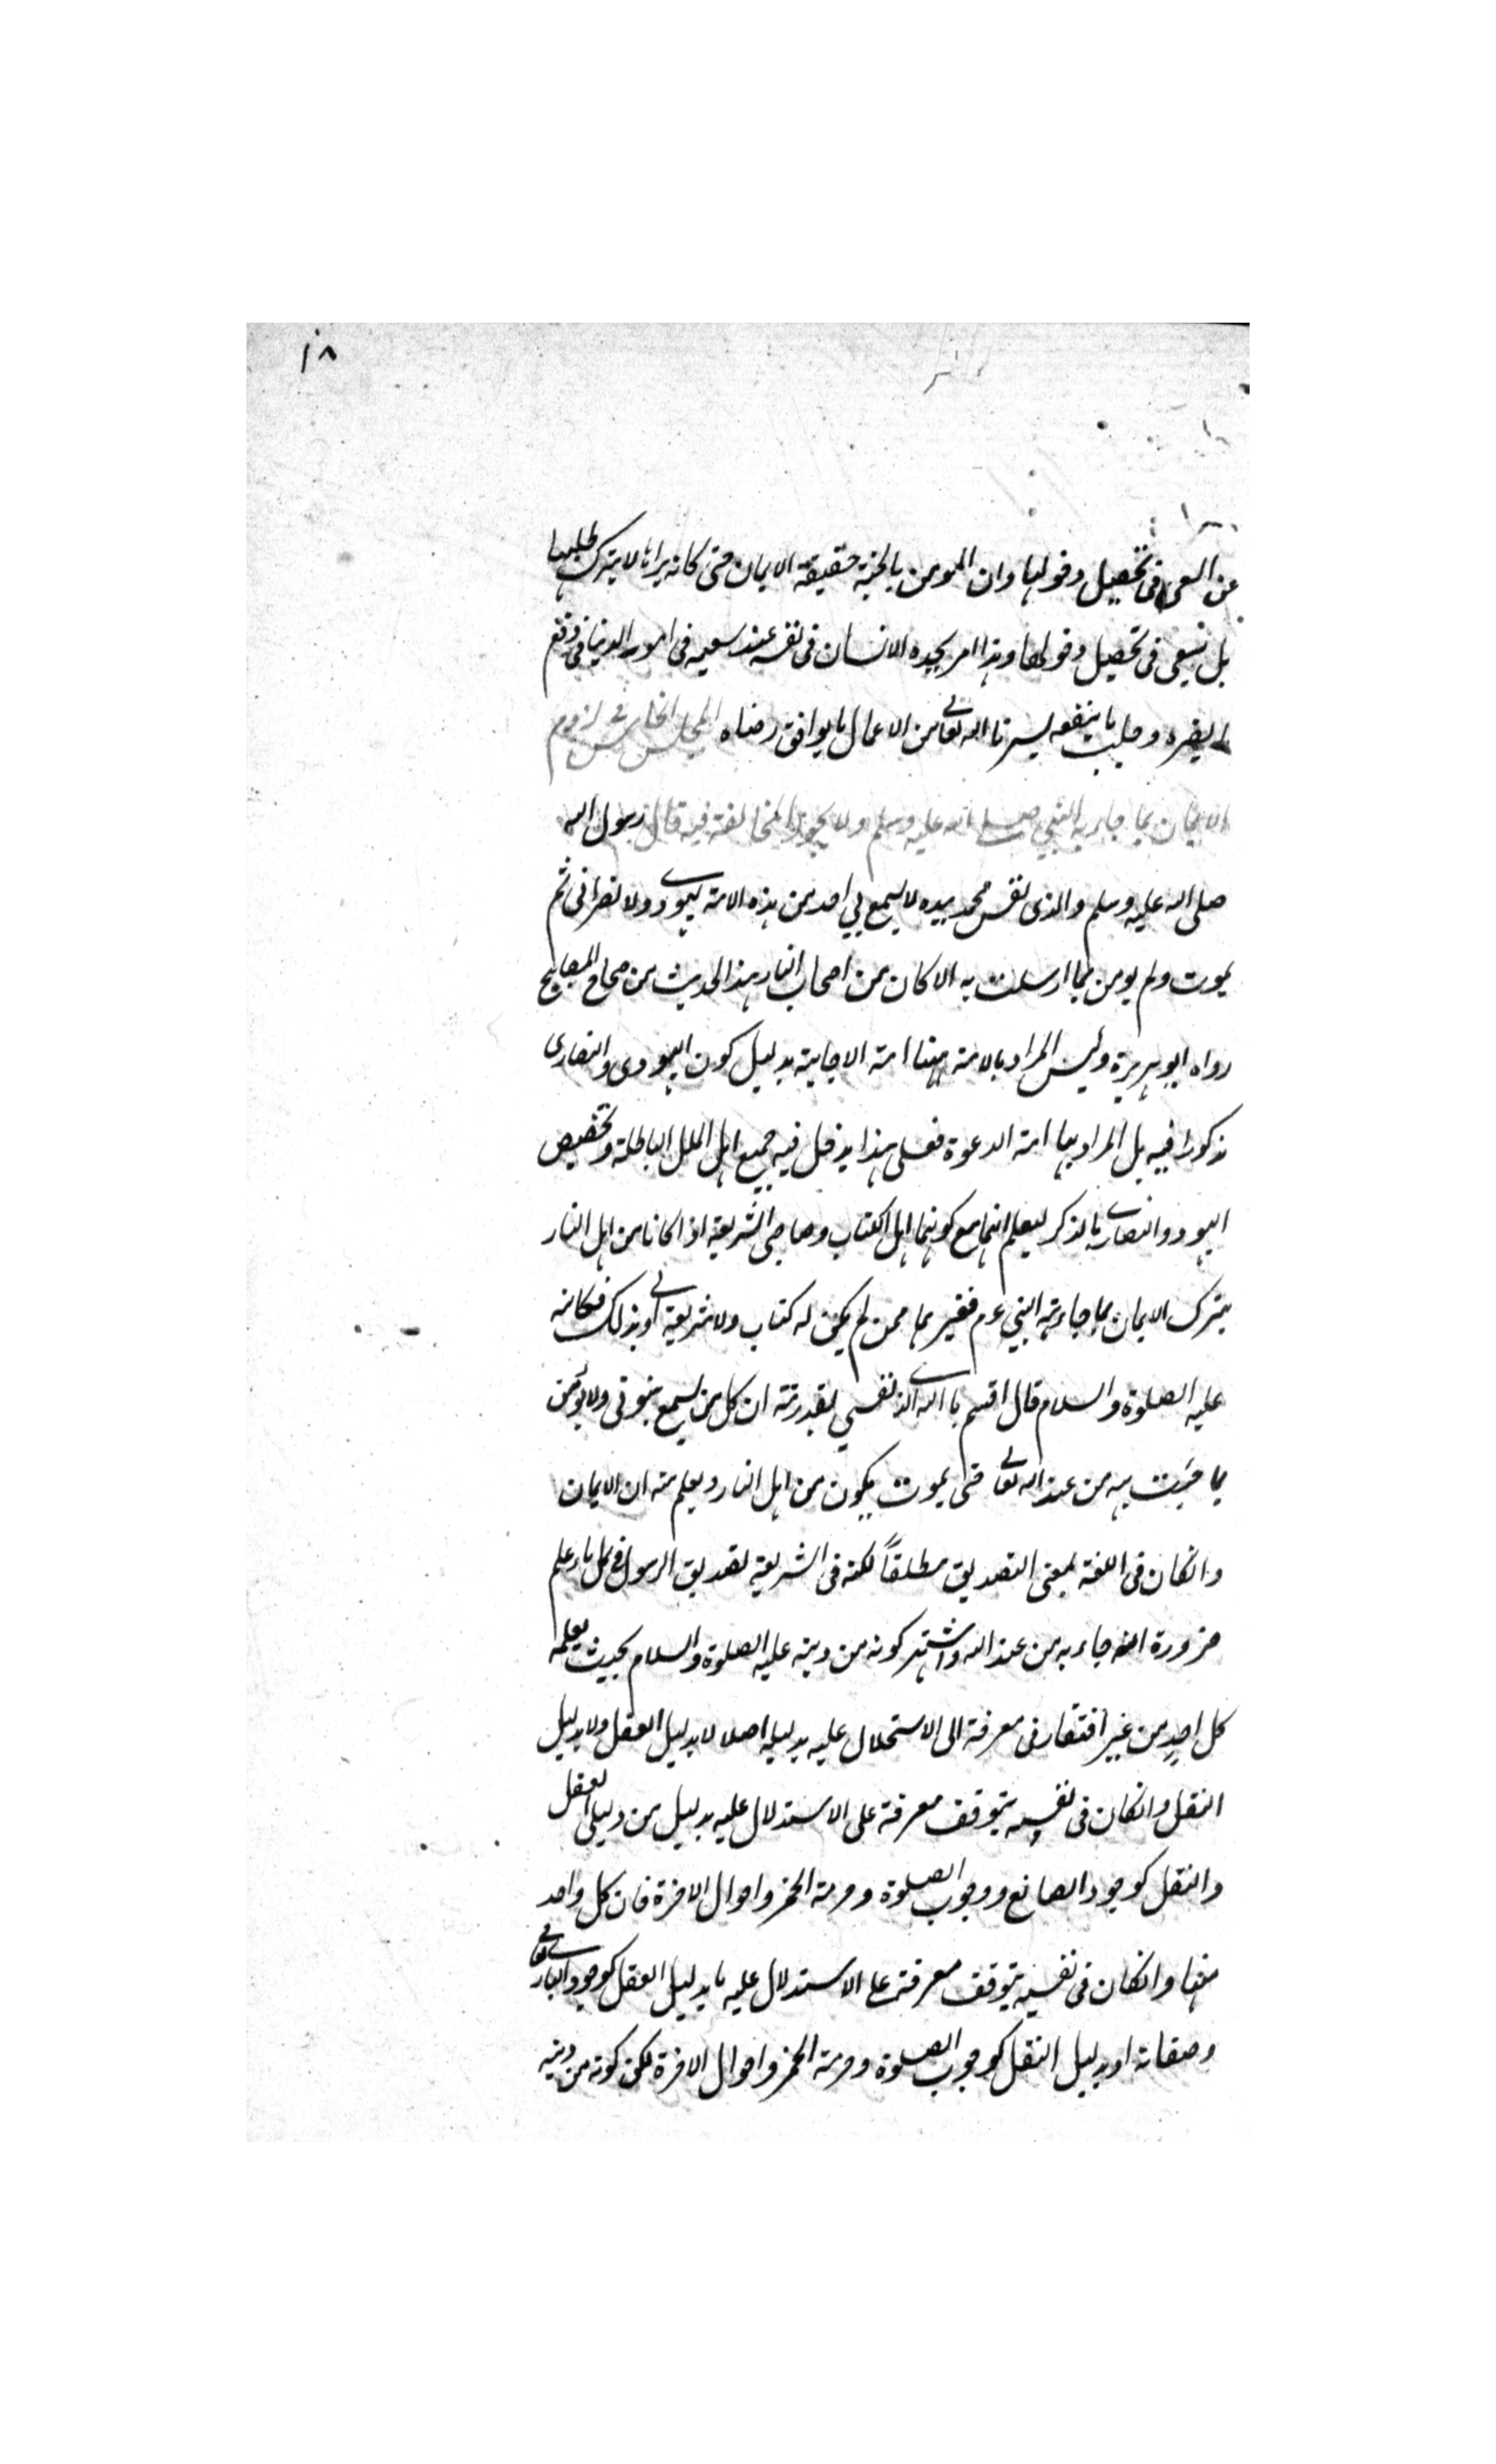 ١٨
عن السعى فى تحصيل دخولها وان المؤمن بالجنة حقيقة الايمان حتى كانه يراها لا يترك طلبها
بل يسعى فى تحصيل دخولها وهذا امر يجده الانسان فى نفسه عند سعيه فى امور الدنيا فى دفع
ما يضره وجلب ما ينفعه يسرنا الله تعالى من الاعمال ما يوافق رضاه المجلس الخامس فى لزوم
الايمان بما جاء به النبى صلى الله عليه وسلم ولا يجوز المخالفة فيه قال رسول الله
صلى الله عليه وسلم والذى نفس محمد بيده لا يسمع بى احد من هذه الامة يهودى ولا نصرانى ثم
يموت ولم يومن بما ارسلت به الا كان من اصحاب النار هذا الحديث من صحاح المصابيح
رواه ابو هريرة وليس المراد بالامة ههنا امة الاجابة بدليل كون اليهودى والنصارى
مذكورا فيه بل المراد بها امة الدعوة فعلى هذا يدخل فيه جميع اهل الملل الباطلة وتخصيص
اليهود والنصارى بالذكر ليعلم انهما مع كونهما اهل الكتاب وصاحبى الشريعة اذا كانا من اهل النار
بترك الايمان بما جاء به النبى عم فغيرهما ممن لم يكن له كتاب ولا شريعة اولى بذلك فكانه
عليه الصلوة والسلام قال اقسم بالله الذى نفسى بقدرته ان كل من يسمع بنبوتى ولا يؤمن
بما جئت به من عند الله تعالى حتى يموت يكون من اهل النار ويعلم منه ان الايمان
وانكان فى اللغة بمعنى التصديق مطلقاً لكنه فى الشريعة تصديق الرسول فى كل ما علم
ضرورة انه جاء به من عند الله واشتهر كونه من دينه عليه الصلوة والسلام بحيث يعلمه
كل احدٍ من غير افتقار فى معرفة الى الاستدلال عليه بدليله اصلا لا بدليل العقل ولا بدليل
النقل وانكان فى نفسه يتوقف معرفة على الاستدلال عليه بدليل من دليلى العقل
والنقل كوجود الصانع ووجوب الصلوة وحرمة الخمر واحوال الاخرة فان كل واحد
منها وانكان فى نفسه يتوقف معرفته على الاستدلال عليه بدليل العقل كوجود البارى تعالى
وصفاته او بدليل النقل كوجوب الصلوة وحرمة الخمر واحوال الاخرة لكن كونه من دينه